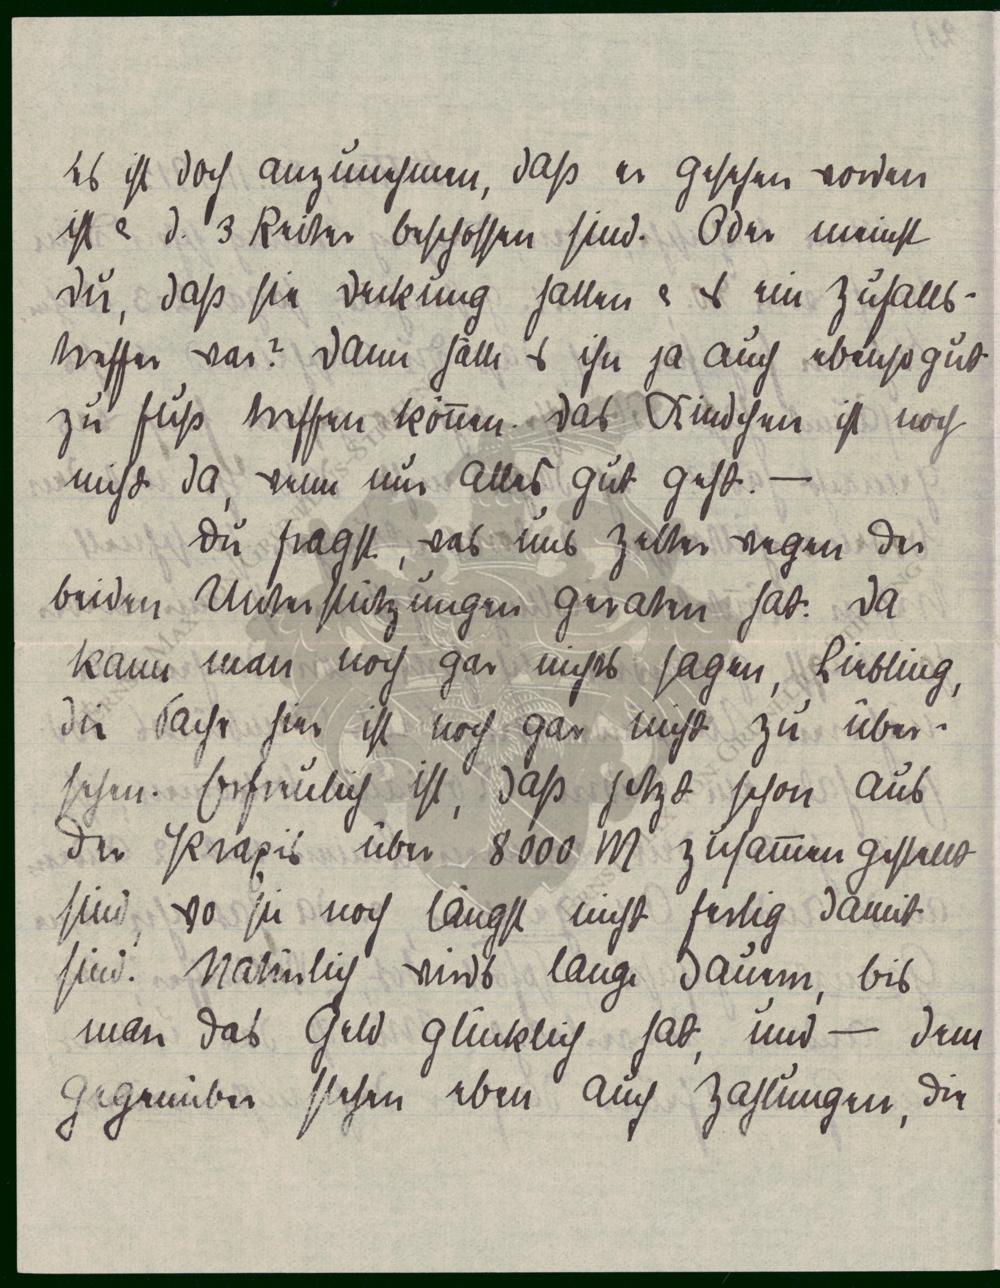 Es ist doch anzunehmen, daß er gesehen worden
ist & d. 3 Reiter beschossen sind. Oder meinst
Du, daß sie Deckung hatten & es ein Zufalls-
treffer war? Dann hätte es ihn ja auch ebensogut
zu Fuß treffen können. Das Kindchen ist noch
nicht da, wenn nur alles gut geht. —
Du fragst, was uns Zelter wegen der
beiden Unterstützungen geraten hat. Da
kann man noch gar nichts sagen, Liebling,
die Sache hier ist noch gar nicht zu über-
sehen. Erfreulich ist, daß jetzt schon aus
der Praxis über 8000 M zusam̄engestellt
sind, wo sie noch längst nicht fertig damit
sind. Natürlich wirds lange dauern, bis
man das Geld glücklich hat, und — dem
gegenüber stehen eben auch Zahlungen, die